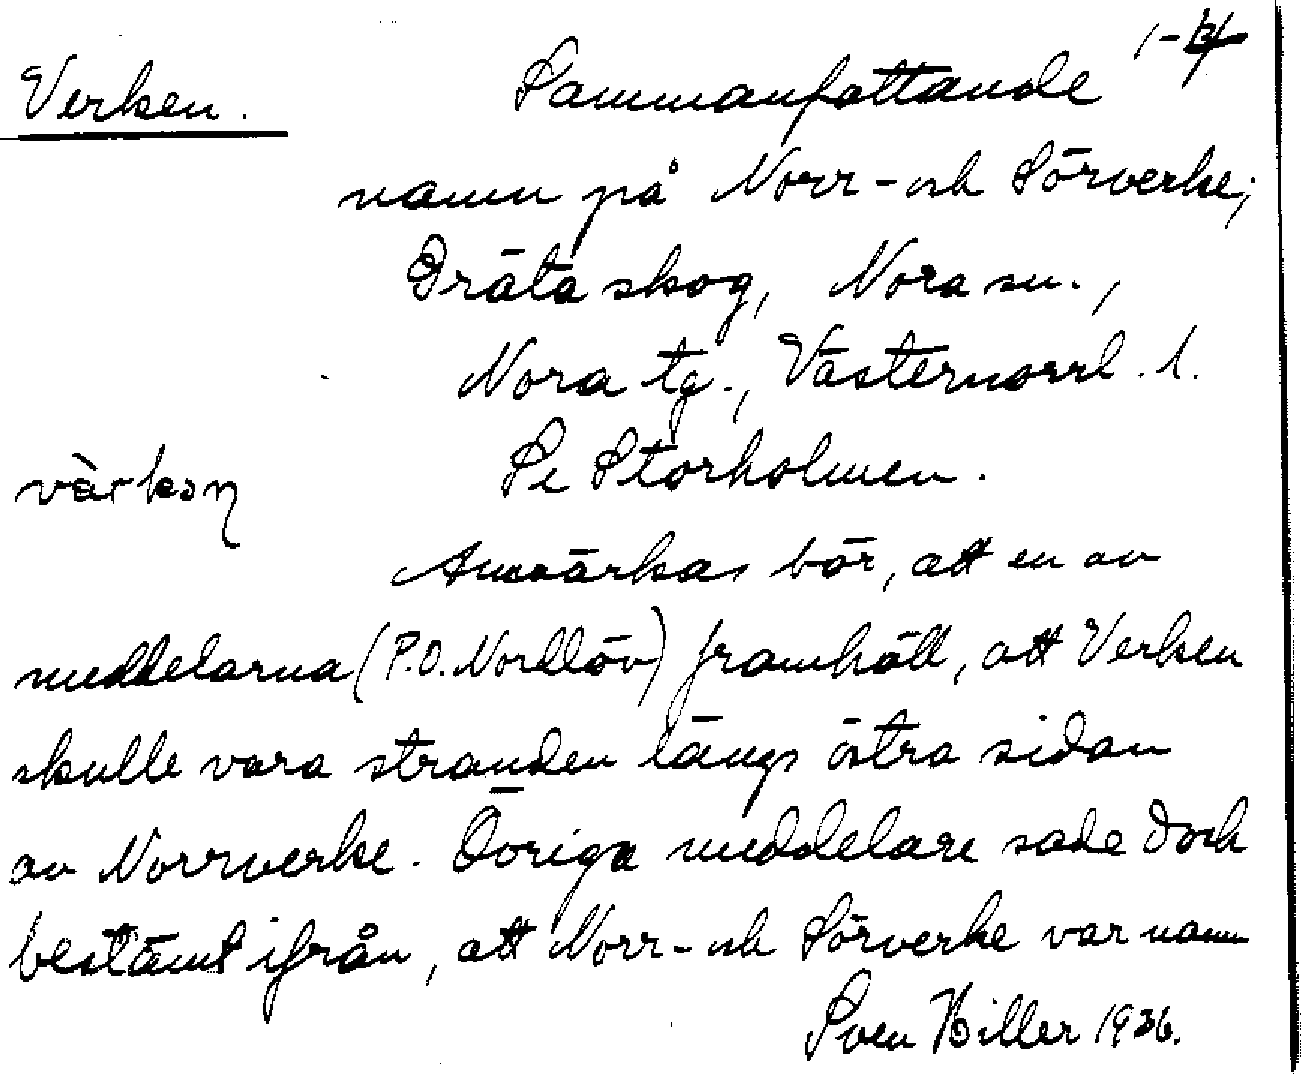 Verken. Sammanfattande 1-
namn på Norr- och Sörverke;
Gräta skog, Nora sn.,
Nora tg., Västernorrl. l.
vàrkən Se Storholmen.
Anmärkas bör, att en av
meddelarna (P.O. Nordlöv) framhöll, att Verken
skulle vara stranden längs östra sidan
av Norrverke. Övriga meddelare sade dock
bestämt ifrån, att Norr- och Sörverke var namn
Sven Hiller 1936.